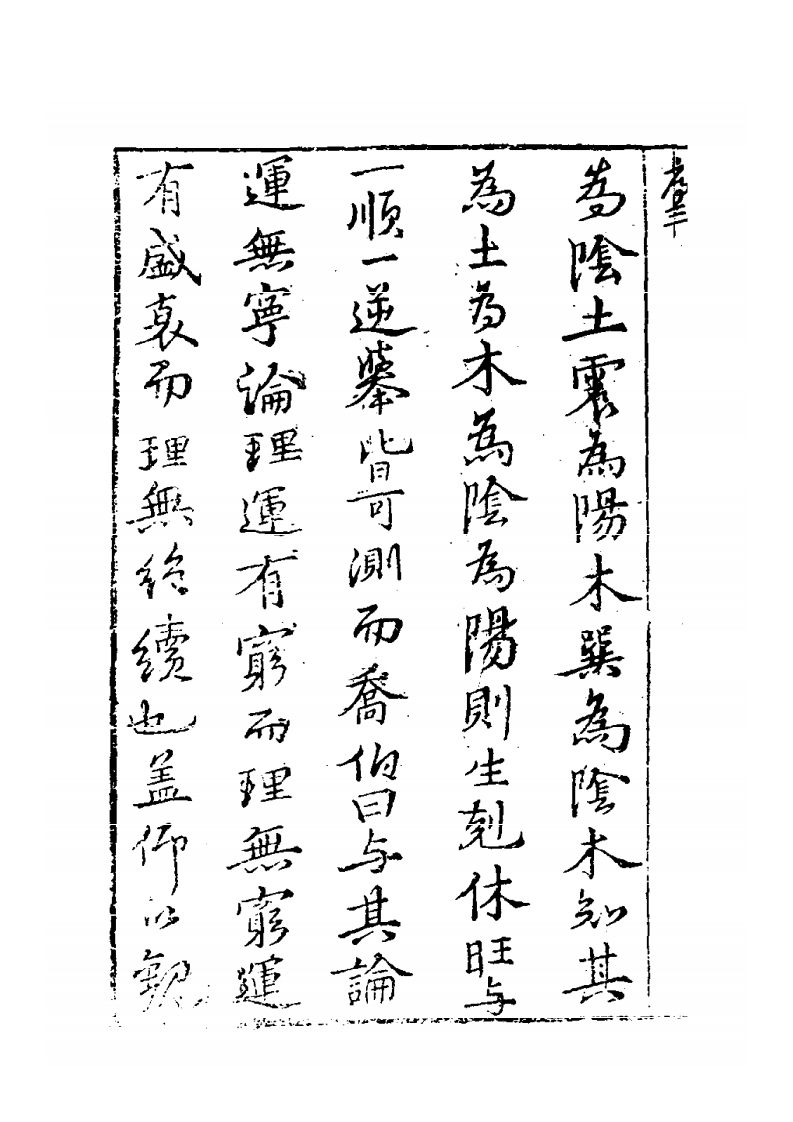 為陰土震為陽木巽為陰木知其
為土為木為陰為陽則生剋休旺与
一順一逆舉皆可測而喬伯曰与其論
運無寧論理運有窮而理無窮運
有盛衰而理無絶續也盖仰以観